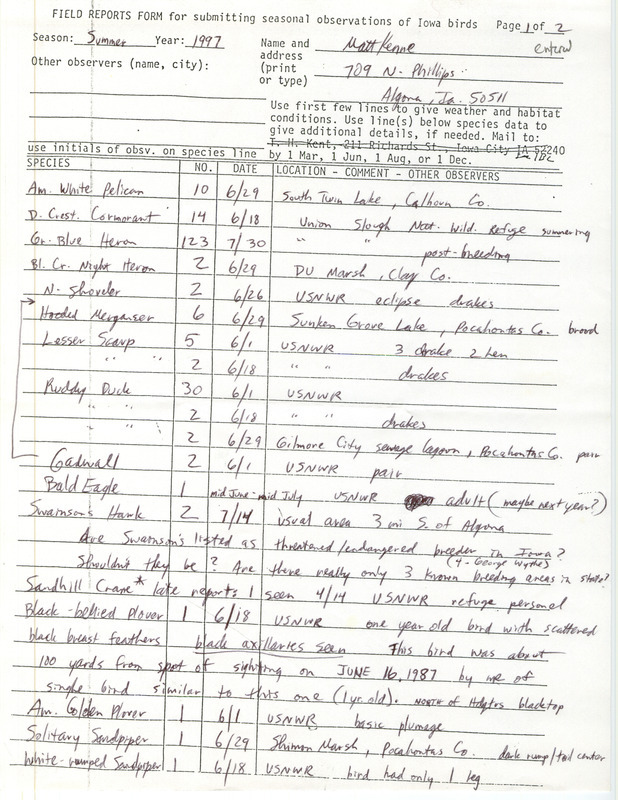 FIELD REPORTS FORM for submitting seasonal observations of Iowa birds Page 1 of 2
Season: Summer Year: 1997 Name and address (print or type) Matt Kenne entered
Other observers (name, city): 709 N. Phillips
Algona, Ia. 50511
Use first few lines to give weather and habitat
conditions. Use line(s) below species data to
give additional details, if needed. Mail to:
T. H. Kent, 211 Richards St., Iowa City IA 52240
use initials of obsv. on species line by 1 Mar, 1 Jun, 1 Aug, or 1 Dec.
SPECIES NO. DATE LOCATION - COMMENT - OTHER OBSERVERS
Am. White Pelican 10 6/29 South Twin Lake, Calhoun Co.
D. Crest. Cormorant 14 6/18 Union Slough Nat. Wild. Refuge summering
Gr. Blue Heron 123 7/30 " " post-breeding
Bl. Cr. Night Heron 2 6/29 DU Marsh, Clay Co.
N. Shoveler 2 6/26 USNWR eclipse drakes
Hooded Merganser 6 6/29 Sunken Grove Lake, Pocahontas Co. brood
Lesser Scaup 5 6/1 USNWR 3 drake 2 hen
" " 2 6/18 " " drakes
Ruddy Duck 30 6/1 USNWR
" " 2 6/18 " " drakes
2 6/29 Gilmore City sewage lagoon, Pocahontas Co. pair
Gadwall 2 6/1 USNWR pair
Bald Eagle 1 mid June-mid July USNWR adult (maybe next year?)
Swainson's Hawk 2 7/14 usual area 3 mi S. of Algona
Are Swainson's listed as threatened/endangered breeder in Iowa?
(4-George Wythe)
Shouldn't they be? Are there really only 3 known breeding areas in state?
Sandhill Crane* late reports 1 seen 4/14 USNWR refuge personal
Black-bellied Plover 1 6/18 USNWR one year old bird with scattered
black breast feathers black axillaries seen This bird was about
100 yards from spot of sighting on JUNE 16, 1987 by me of
single bird similar to this one (1 yr. old). NORTH of Hdqtrs blacktop
Am. Golden Plover 1 6/1 USNWR basic plumage
Solitary Sandpiper 1 6/29 Shimon Marsh, Pocahontas Co. dark rump/tail center
White-rumped Sandpiper 1 6/18 USNWR bird had only 1 leg